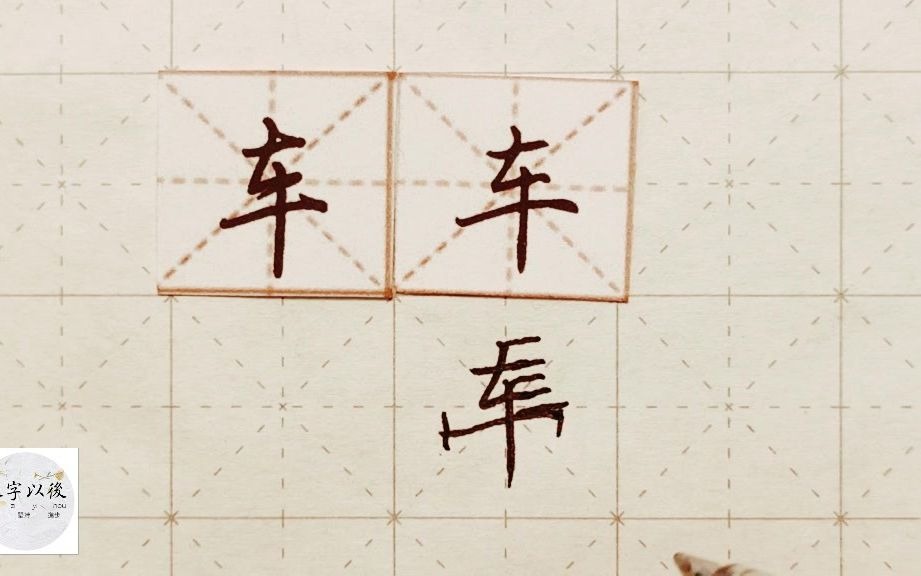 车 车
车
字以後